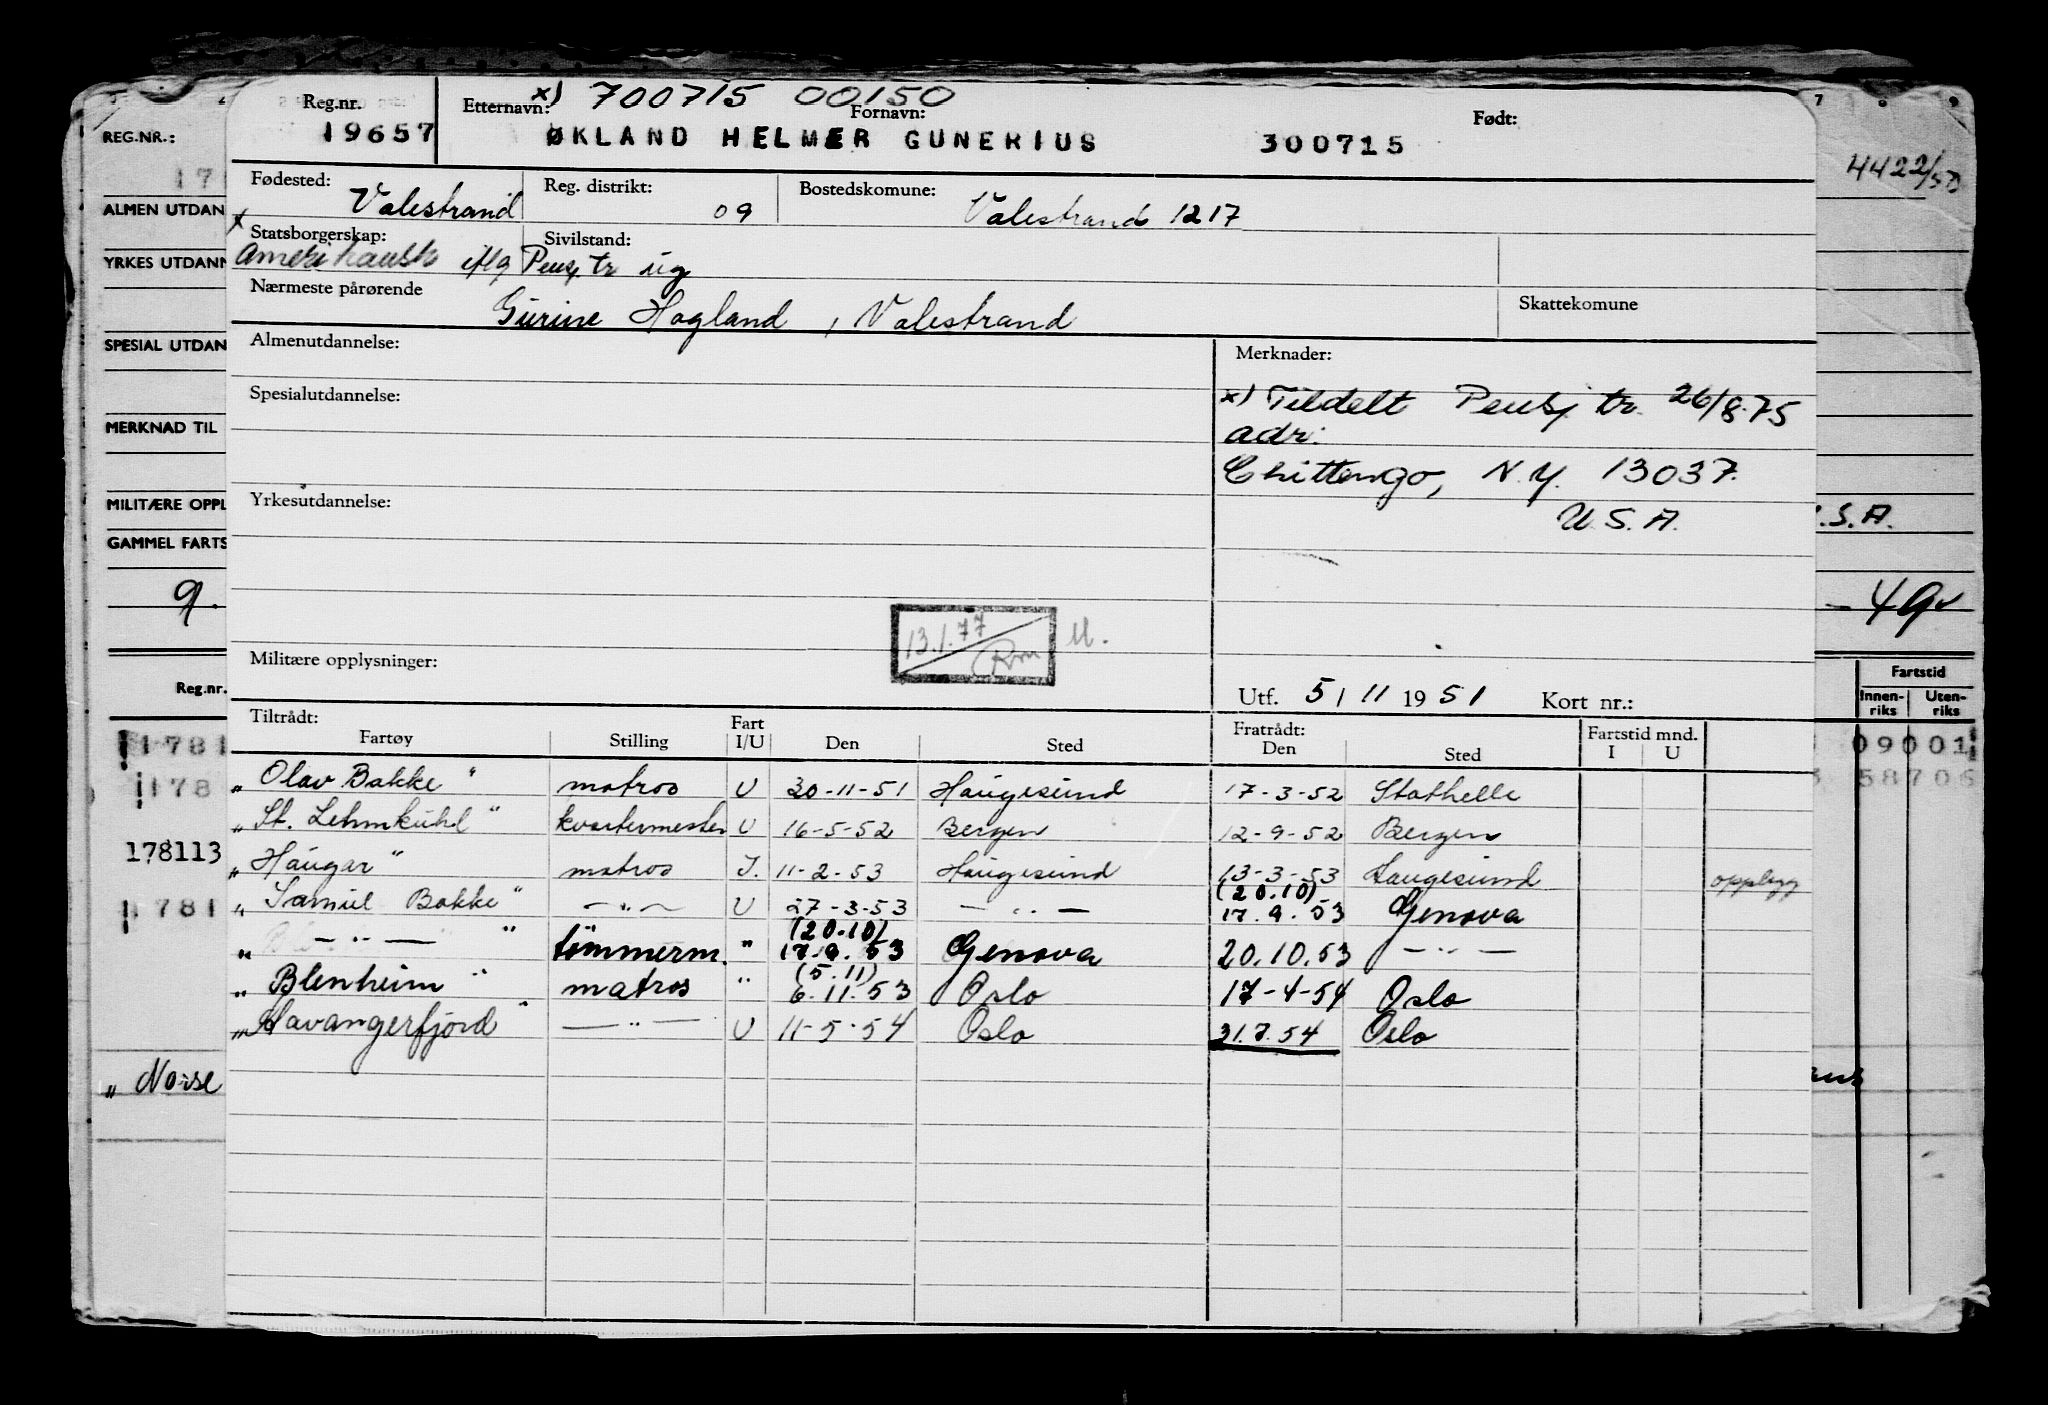 x) 700715 00150
Reg.nr. Etternavn: Fornavn: Født:
19657 ØKLAND HELMER GUNERIUS 300715
Fødested: Valestrand Reg. distrikt: 09 Bostedskomune: Valestrand 1217
x Statsborgerskap: Amerikansk iflg Pensj. tr Sivilstand: ug
Nærmeste pårørende Gurine Hogland, Valestrand Skattekomune
Almenutdannelse: Merknader:
Spesialutdannelse: x) Tildelt Pensj tr. 26/8-75
adr:
Chittengo, N.Y. 13037.
Yrkesutdannelse: U.S.A.
13.1.77 Rm U.
Militære opplysninger:
Utf. 5/11 1951 Kort nr.:
Tiltrådt: Fratrådt: Fartstid mnd.
Fartøy Stilling Fart I/U Den Sted Den Sted I U
"Olav Bakke" matros U 30-11-51 Haugesund 17-3-52 Stathelle
"St. Lehmkuhl" kvartermester U 16-5-52 Bergen 12-9-52 Bergen
"Haugar" matros I. 11-2-53 Haugesund 13-3-53 Haugesund opplegg
"Samuel Bakke" — " — U 27-3-53 — " — (20.10) 17.9.53 Genova
" — " — " tømmerm. " (20.10) 17.9.53 Genova 20.10.53 — " —
"Blenheim" matros " (5.11) 6.11.53 Oslo 17-4-54 Oslo
"Stavangerfjord" — " — U 11-5-54 Oslo 31.7.54 Oslo
REG.NR.:
ALMEN UTDAN
YRKES UTDANN
SPESIAL UTDAN
MERKNAD TIL
MILITÆRE OPPL
GAMMEL FARTS
9.
Reg.nr.
1781
178
178113
1781
"Norse
7 8 9
4422/50
.S.A.
Fartstid
Innen-riks Uten-riks
09001
58706